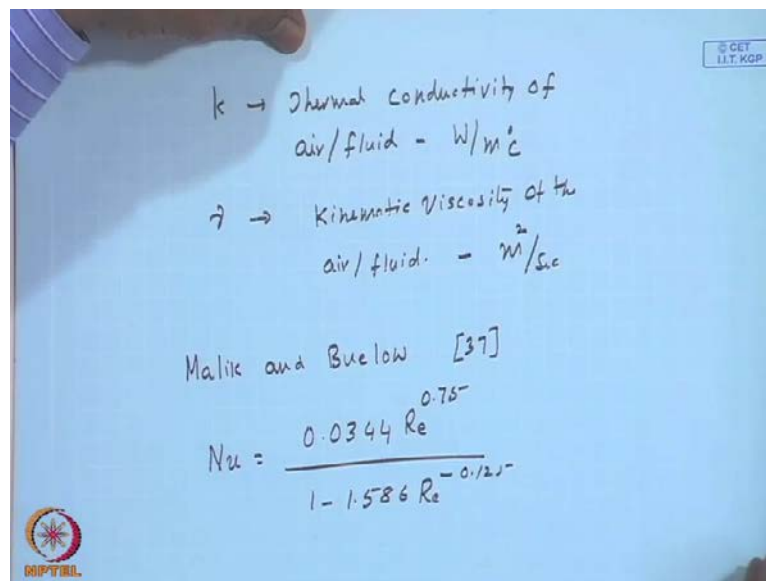 © CET
I.I.T. KGP
k → Thermal conductivity of
air/fluid - W/m°C
ν → Kinematic Viscosity of the
air/fluid. - m²/Sec
Malik and Buelow [37]
Nu = 0.0344 Re^0.75 / 1 - 1.586 Re^-0.125
NPTEL